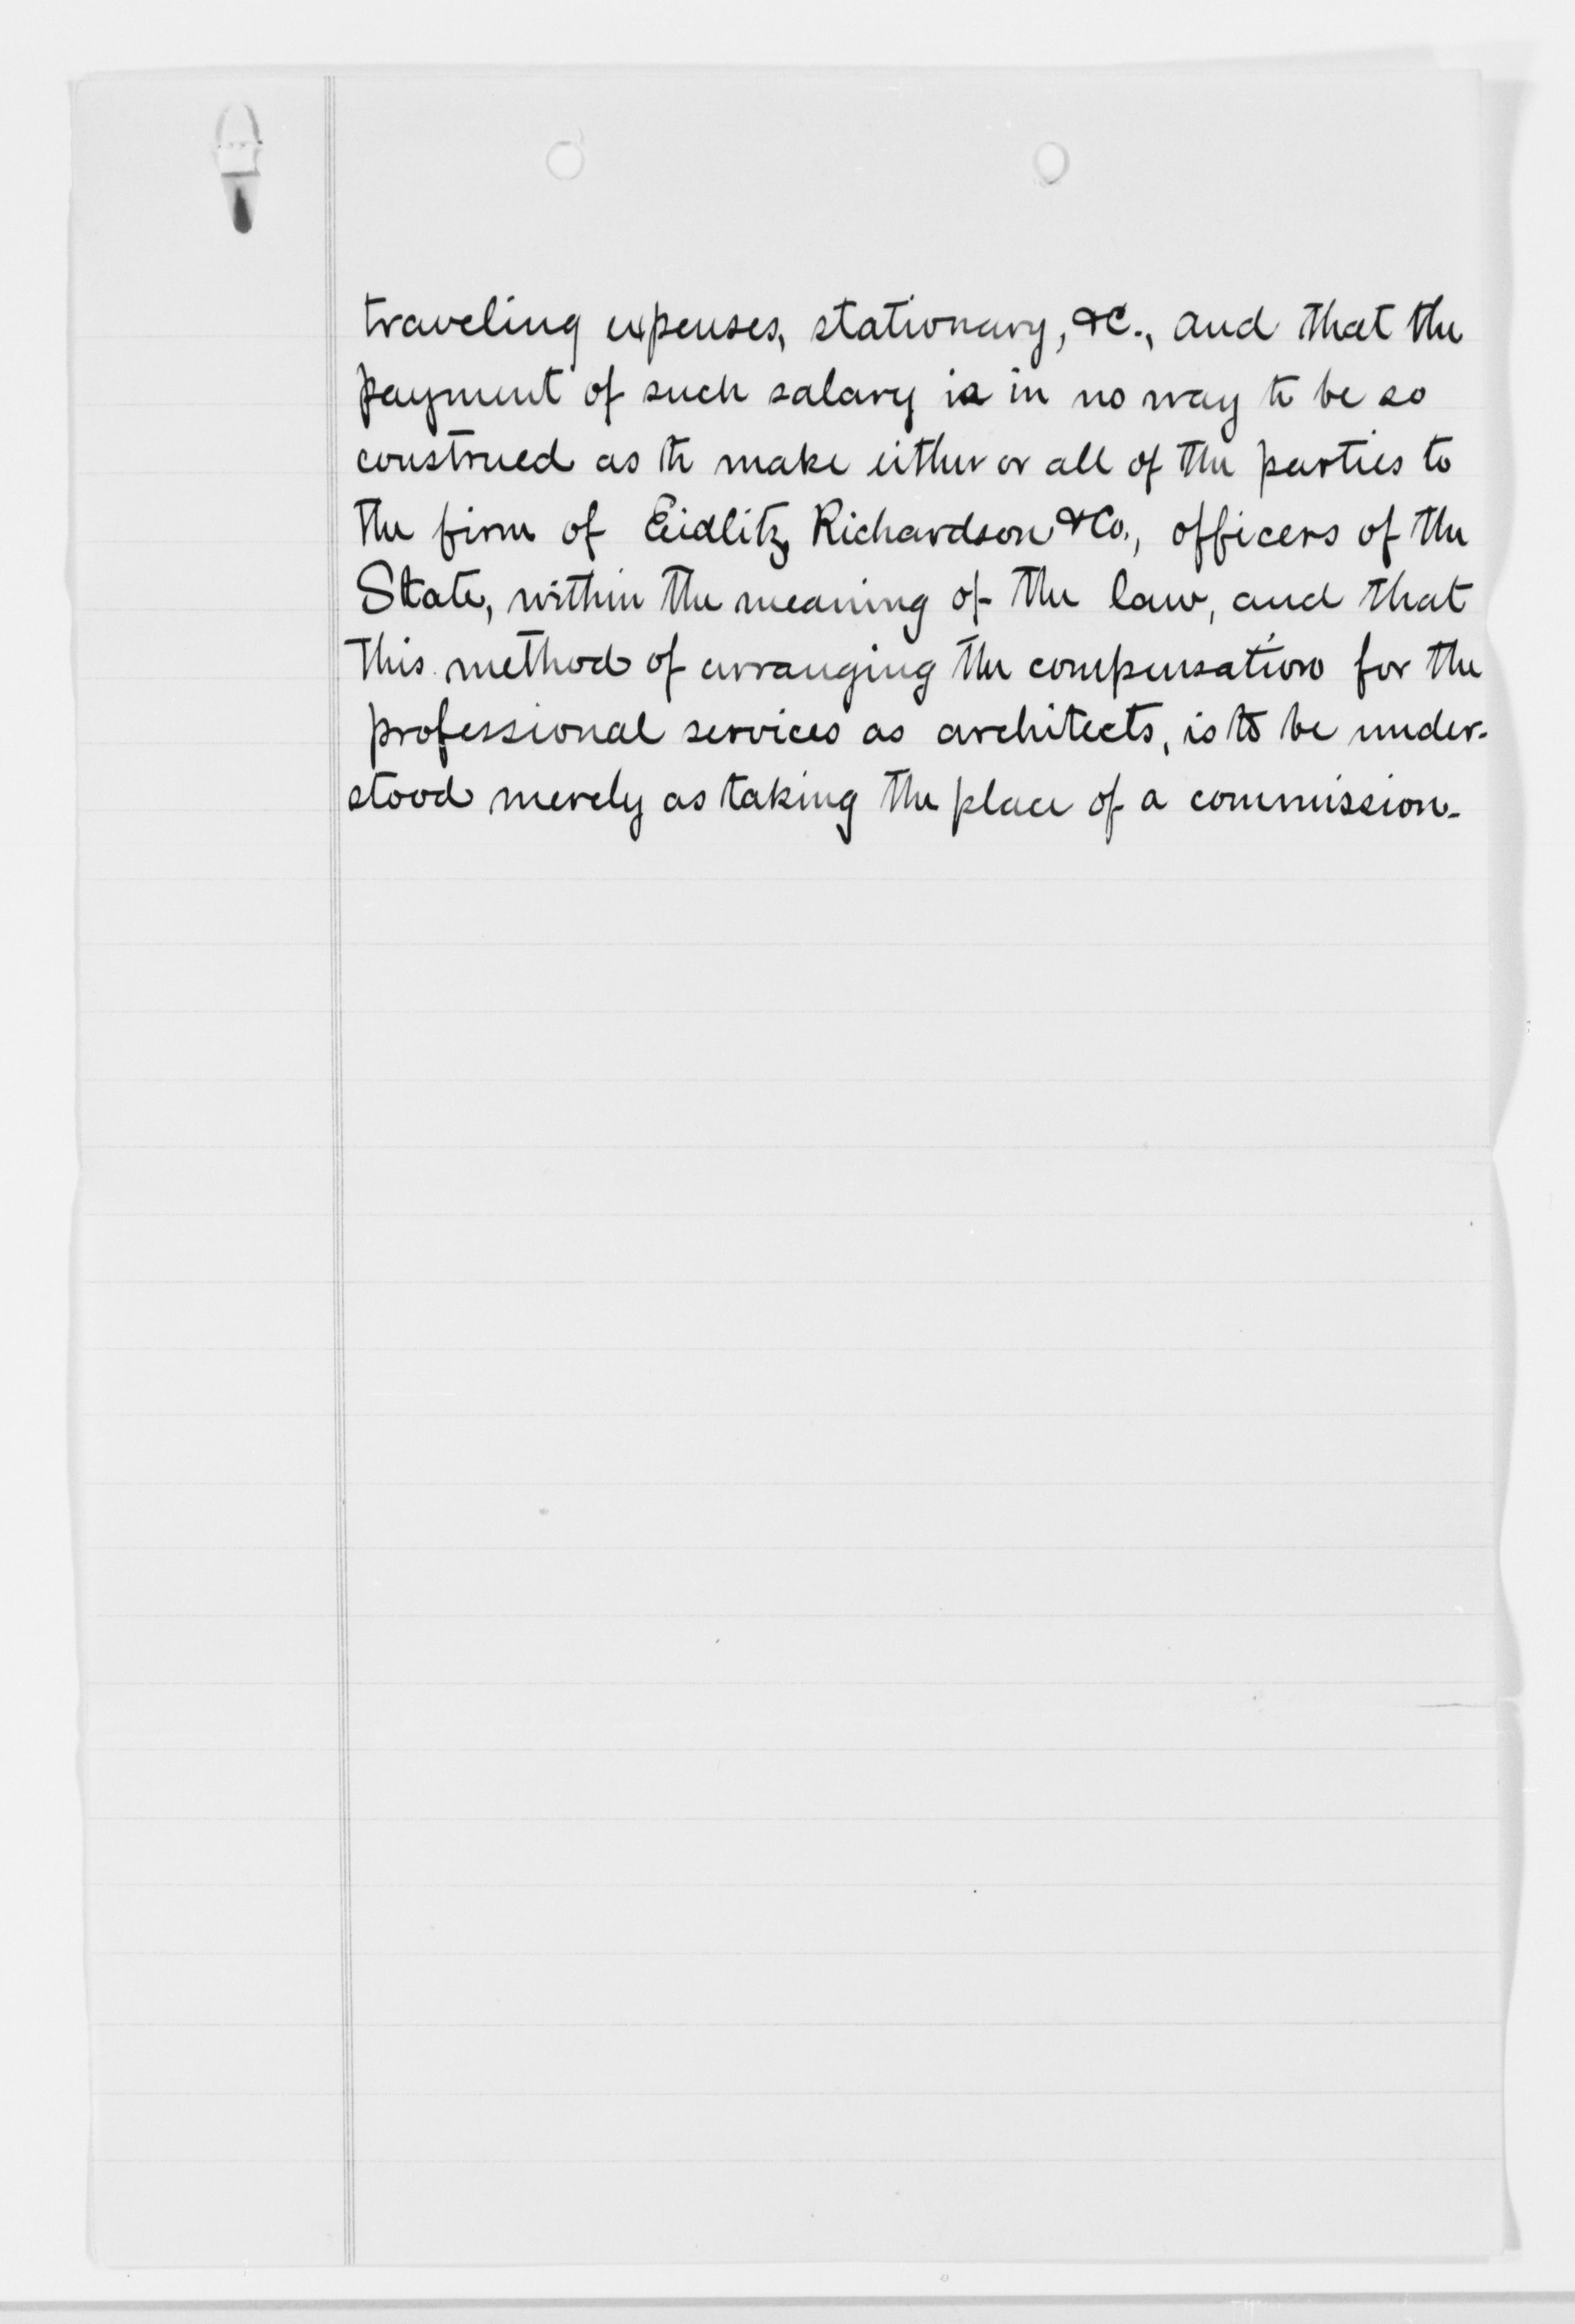 traveling expenses, stationary, &C., and that the
payment of such salary is in no way to be so
construed as to make either or all of the parties to
the firm of Eidlitz, Richardson & Co., officers of the
State, within the meaning of the law, and that
this method of arranging the compensation for the
professional services as architects, is to be under-
stood merely as taking the place of a commission.